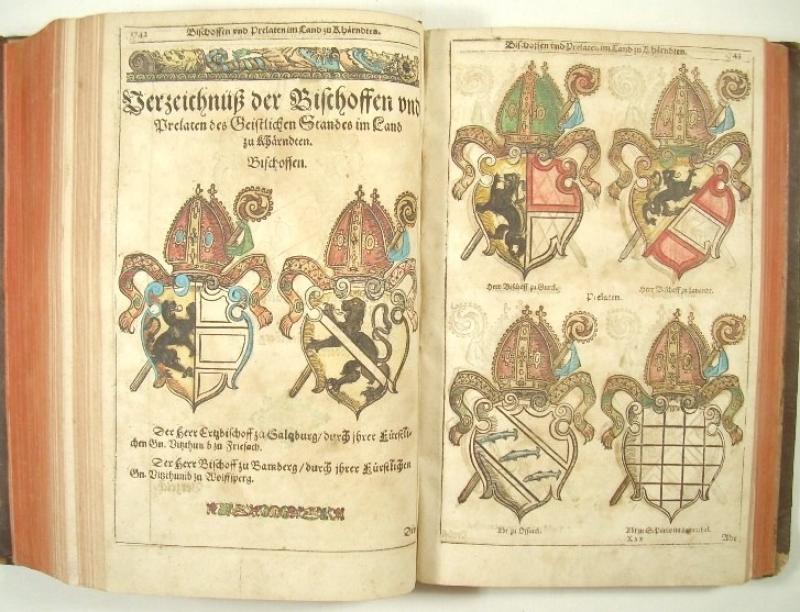 1742
Bischoffen vnd Prelaten im Land zu Khärndten.
Verzeichnüß der Bischoffen vnd
Prelaten des Geistlichen Standes im Land
zu Khärndten.
Bischoffen.
Der Herr Ertzbischoff zu Saltzburg/durch jhrer Fürstli-
chen Gn. Vitzthumb zu Friesach.
Der Herr Bischoff zu Bamberg/durch jhrer Fürstlichen
Gn. Vitzthumb zu Wolffsperg.
Bischoffen vnd Prelaten im Land zu Khärndten.
43
Herr Bischoff zu Gurck.
Herr Bischoff zu Lavendt.
Prelaten.
Abt zu Ossiach.
Abt zu S. Paul im
Xxx